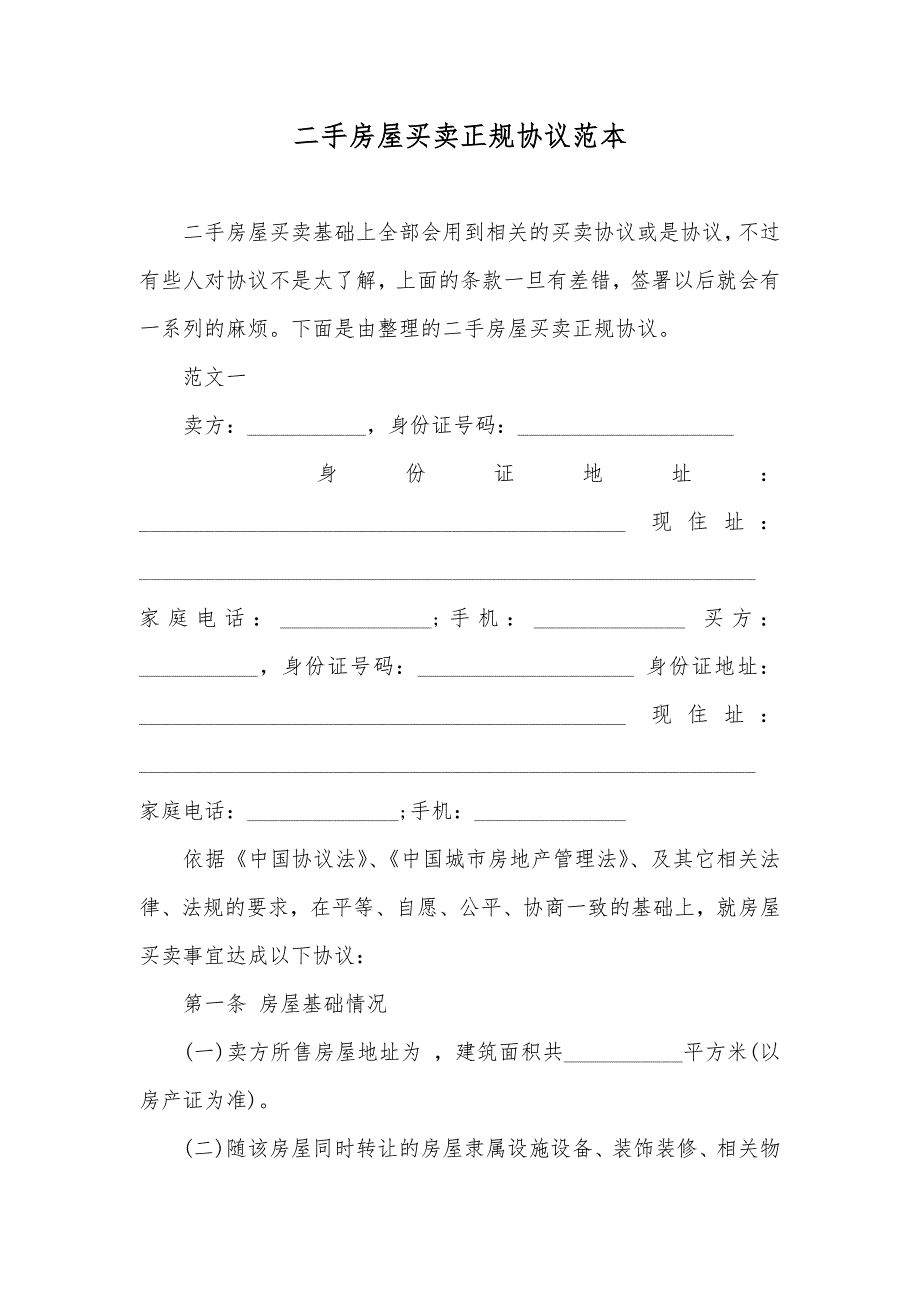 二手房屋买卖正规协议范本
二手房屋买卖基础上全部会用到相关的买卖协议或是协议,不过
有些人对协议不是太了解,上面的条款一旦有差错,签署以后就会有
一系列的麻烦。下面是由整理的二手房屋买卖正规协议。
范文一
卖方:___________，身份证号码:____________________
身份证地址：
_____________________________________________ 现住址：
_________________________________________________________
家庭电话：______________;手机：______________ 买方：
___________，身份证号码:____________________ 身份证地址:
_____________________________________________ 现住址：
_________________________________________________________
家庭电话:______________;手机:______________
依据《中国协议法》、《中国城市房地产管理法》、及其它相关法
律、法规的要求,在平等、自愿、公平、协商一致的基础上，就房屋
买卖事宜达成以下协议:
第一条 房屋基础情况
(一)卖方所售房屋地址为 ，建筑面积共___________平方米(以
房产证为准)。
(二)随该房屋同时转让的房屋隶属设施设备、装饰装修、相关物